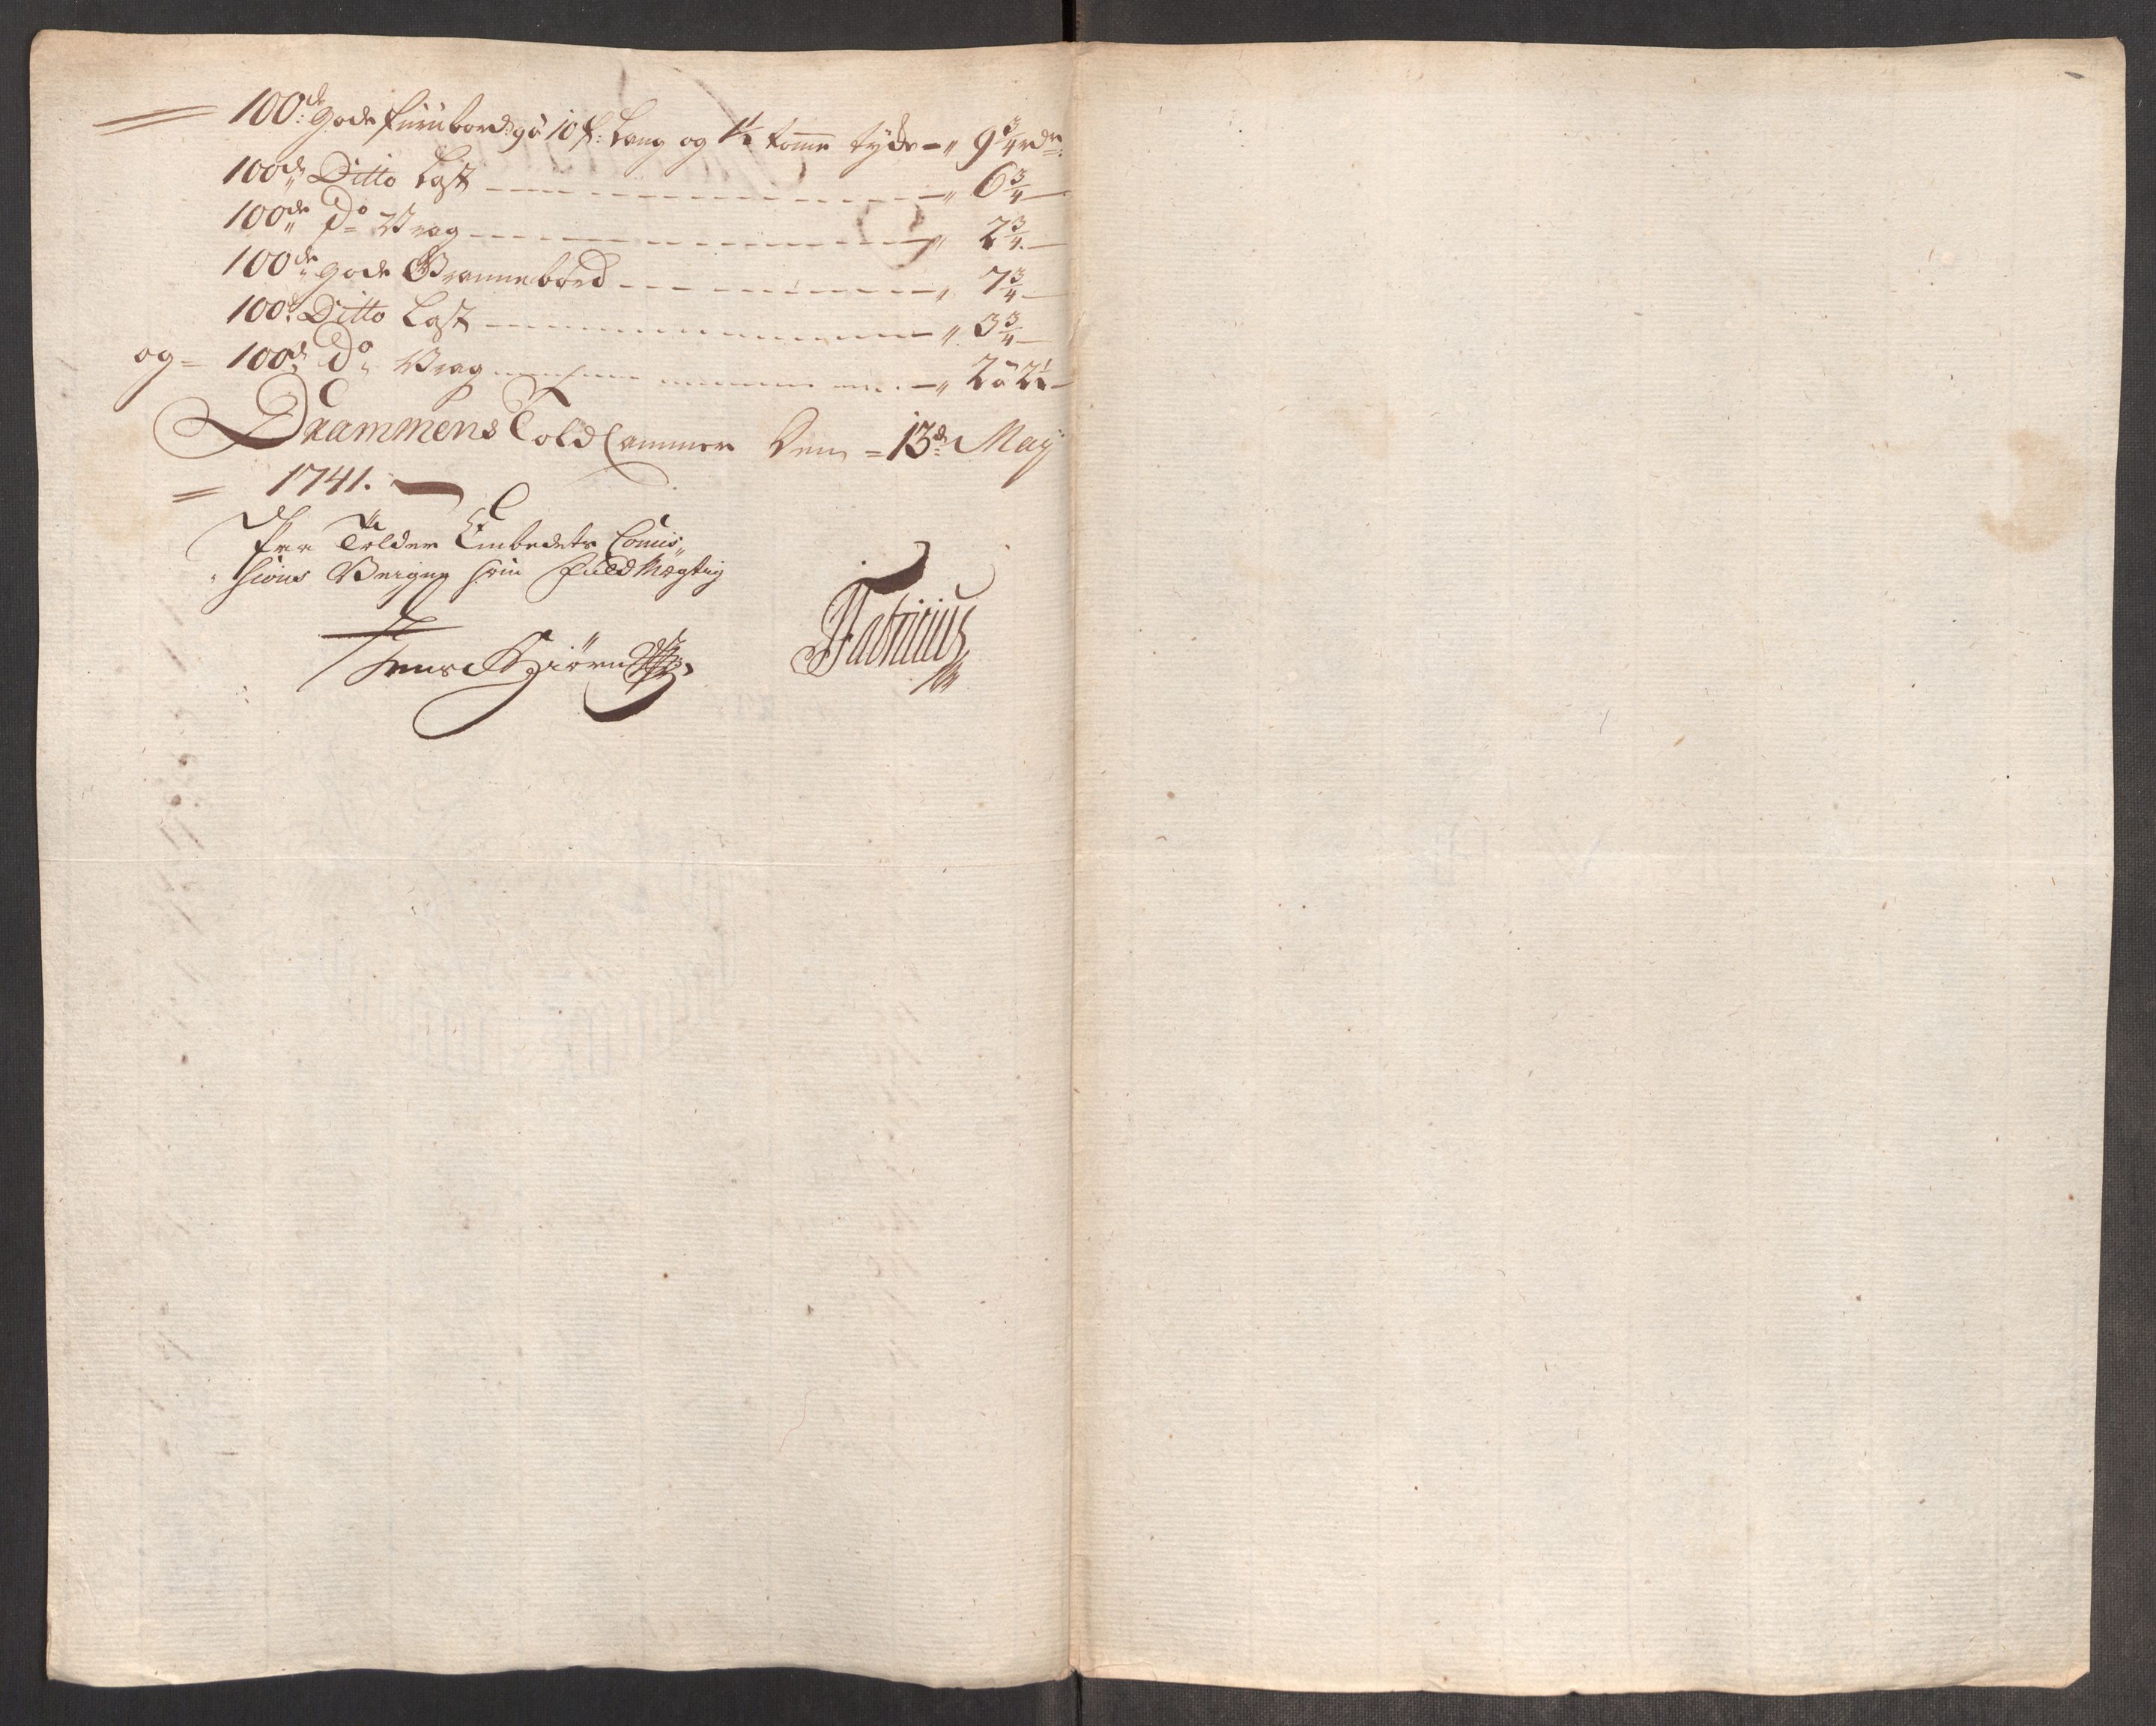 100de gode furubord 9 à 10 f: Lang og 1½ tomme tyke -" 9¾ rdr:
100de Ditto Last - " 6¾ -
100de Do Vrag - " 2¾ -
100de gode Grannebord - " 7¾ -
100de Ditto Last - " 3¾ -
og = 100de Do Vrag - " 2 à 2½ -
Drammens Told Cammer Den = 13de Maÿ
= 1741. -
Tolder Embedets Comis„
„sions Vegne som Fuldmægtig
Fabritius